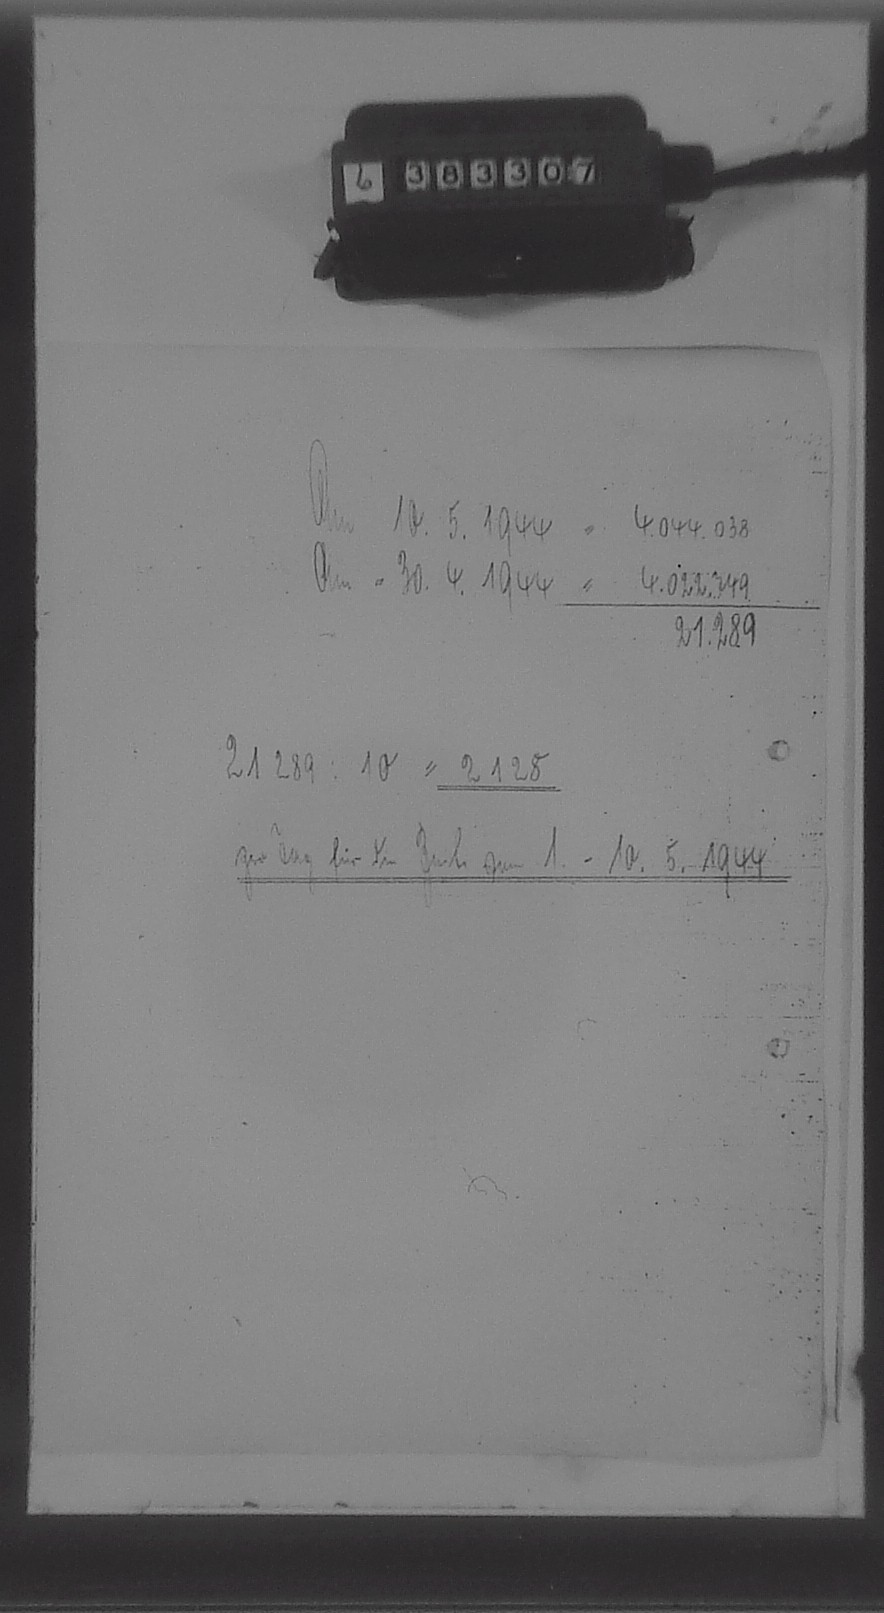 6 383307
Am 10. 5. 1944 = 4.044.038
Am 30. 4. 1944 = 4.022.749
21.289
21289 : 10 = 2128
pro Tag für die zum 1. - 10. 5. 1944